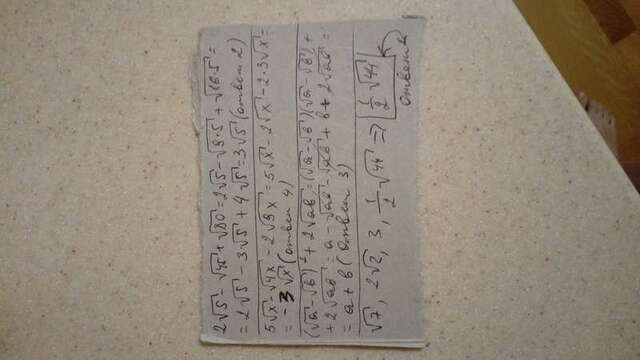 2√5 - √45 + √80 = 2√5 - √9·5 + √16·5 =
= 2√5 - 3√5 + 4√5 = 3√5 (ответ 2)
5√x - √4x - 2√9x = 5√x - 2√x - 2·3√x =
= -3√x (ответ 4)
(√a - √b)² + 2√ab = (√a - √b)(√a - √b) +
+ 2√ab = a - √ab - √ab + b + 2√ab =
= a + b (Ответ 3)
√7, 2√2, 3, 1/2 √44 ⇒ 1/2 √44
Ответ